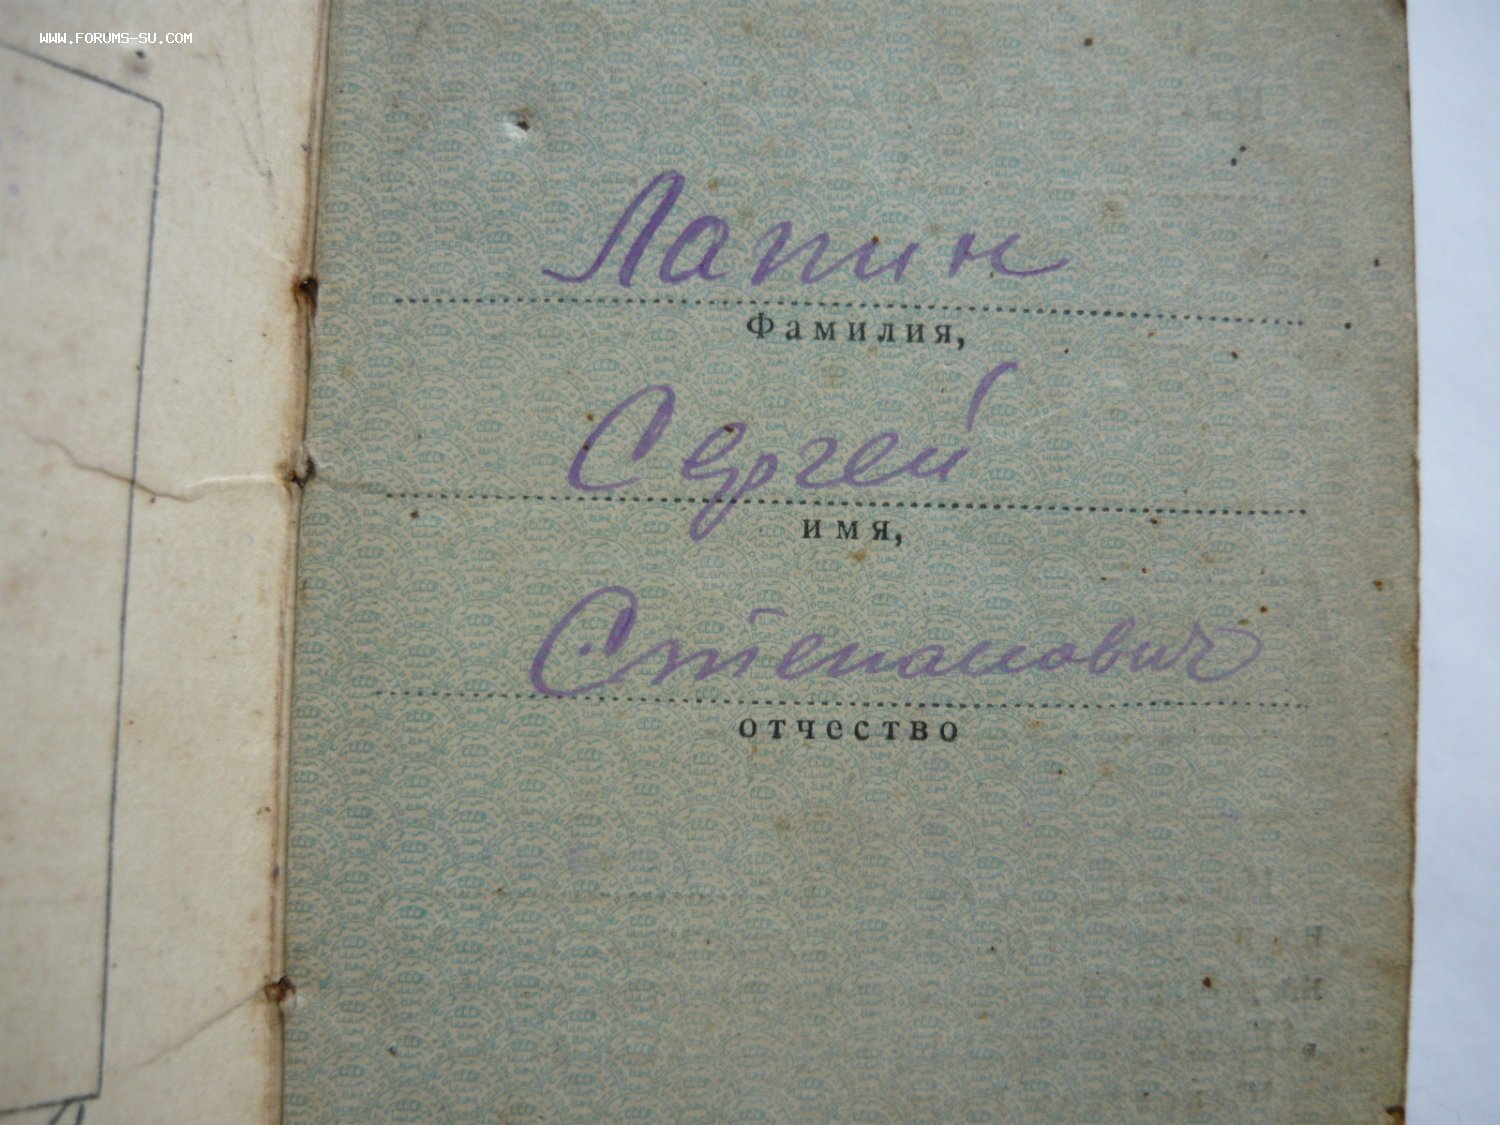 WWW.FORUMS-SU.COM
Лапин
Фамилия,
Сергей
имя,
Степанович
отчество